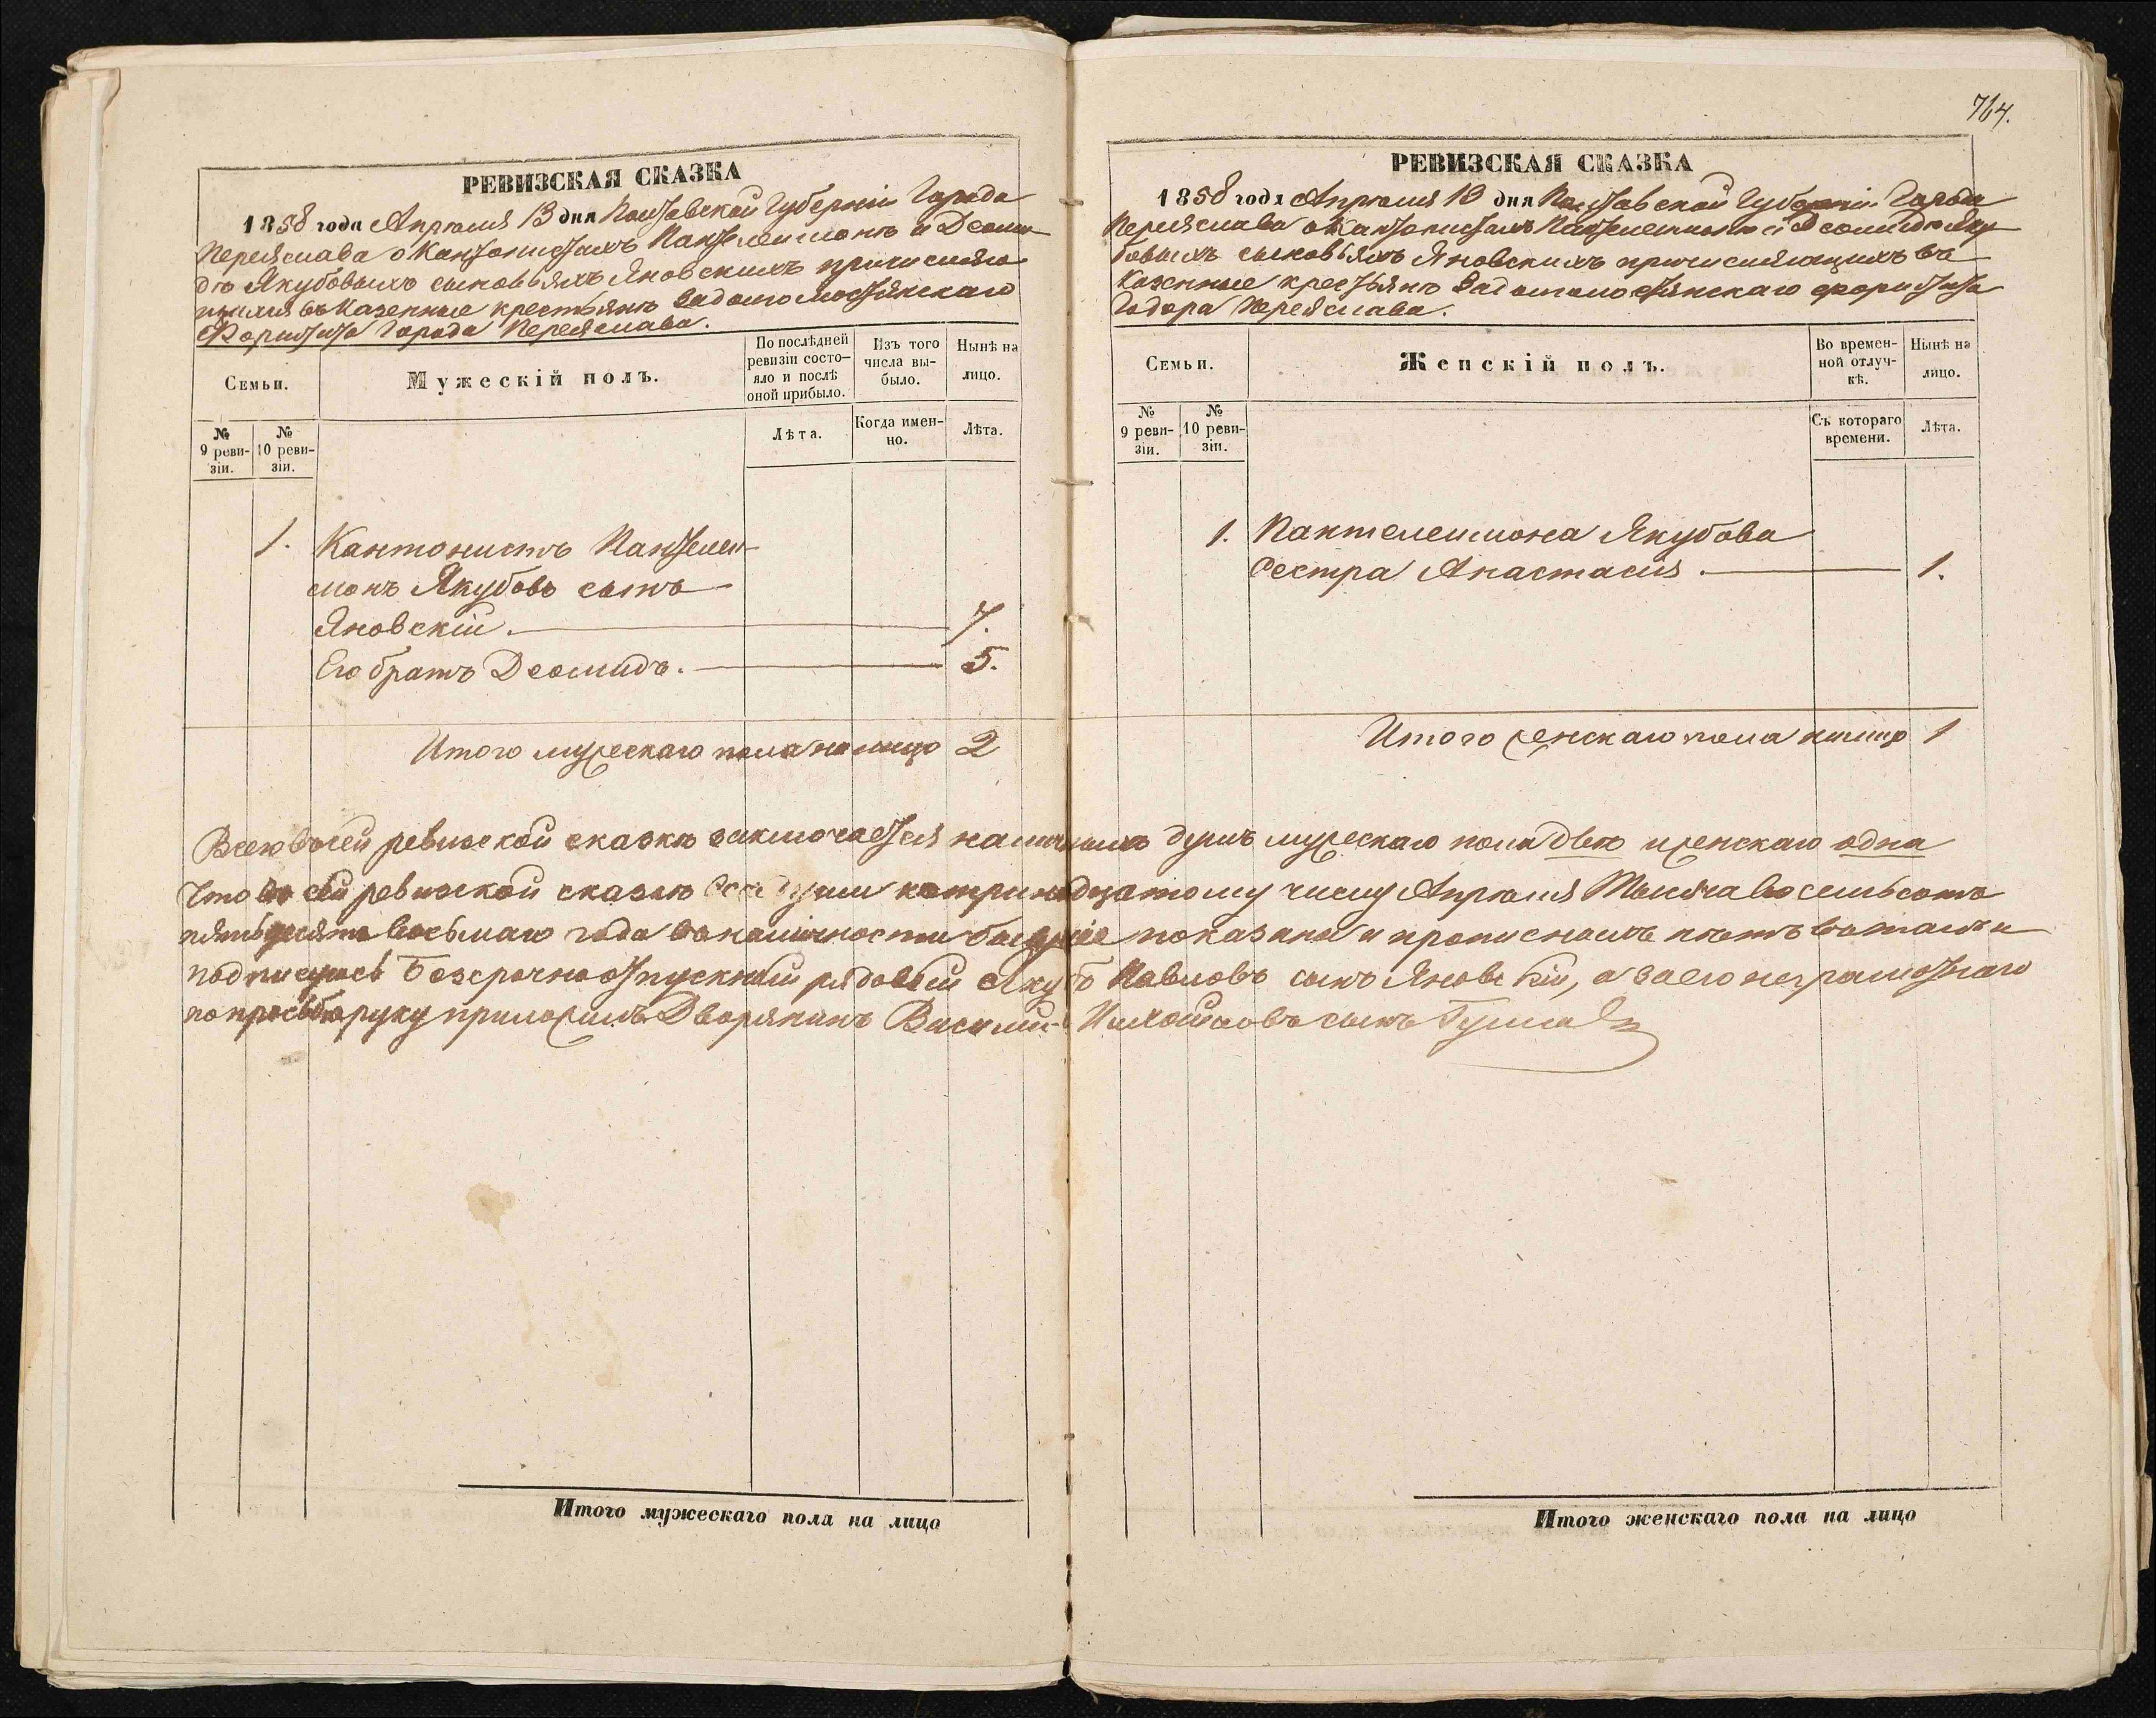 764.
РЕВИЗСКАЯ СКАЗКА
1858 года Апрѣля 13 дня Полтавской Губерніи Города
Переяслава о Кантонистахъ Пантелеимонѣ и Деоми-
дѣ Якубовыхъ сыновьяхъ Яновскихъ причисляю-
щихся въ Казенные крестьяне
Форштата Города Переяслава.
Семьи.
Мужескій полъ.
По послѣдней ревизіи состо-
яло и послѣ оной прибыло.
Изъ того числа вы-
было.
Нынѣ на лицо.
№ 9 реви-
зіи.
№ 10 реви-
зіи.
Лѣта.
Когда имен-
но.
Лѣта.
1. Кантонистъ Пантелеи-
монъ Якубовъ сынъ
Яновскій. 7.
Его братъ Деомидъ. 5.
Итого мужескаго пола на лицо 2
РЕВИЗСКАЯ СКАЗКА
1858 года Апрѣля 13 дня Полтавской Губерніи Города
Переяслава о Кантонистахъ Пантелеимонѣ и Деомидѣ Яку-
бовыхъ сыновьяхъ Яновскихъ причисляющихъ въ
Казенные крестьяне форштата
Годора Переяслава.
Семьи.
Женскій полъ.
Во времен-
ной отлуч-
кѣ.
Нынѣ на лицо.
№ 9 реви-
зіи.
№ 10 реви-
зіи.
Съ котораго времени.
Лѣта.
1. Пантелеимона Якубова
Сестра Анастасія. 1.
Итого женскаго пола налицо 1
Всего въ сей ревизской сказкѣ заключается наличныхъ душъ мужескаго пола двѣ и женскаго одна
Что въ сей ревизской сказкѣ все души к тринадцатому числу Апрѣля Тысяча восемьсотъ
пятьдесятъ восьмаго года въ наличности бывшіе показаны и прописныхъ нѣтъ въ томъ и
подписуюсь Безсрочноотпускный рядовый Якубъ Павловъ сынъ Яновскій, а за его неграмотнаго
по прозьбѣ руку приложилъ Дворянинъ Василій сынъ
Итого мужескаго пола на лицо
Итого женскаго пола на лицо